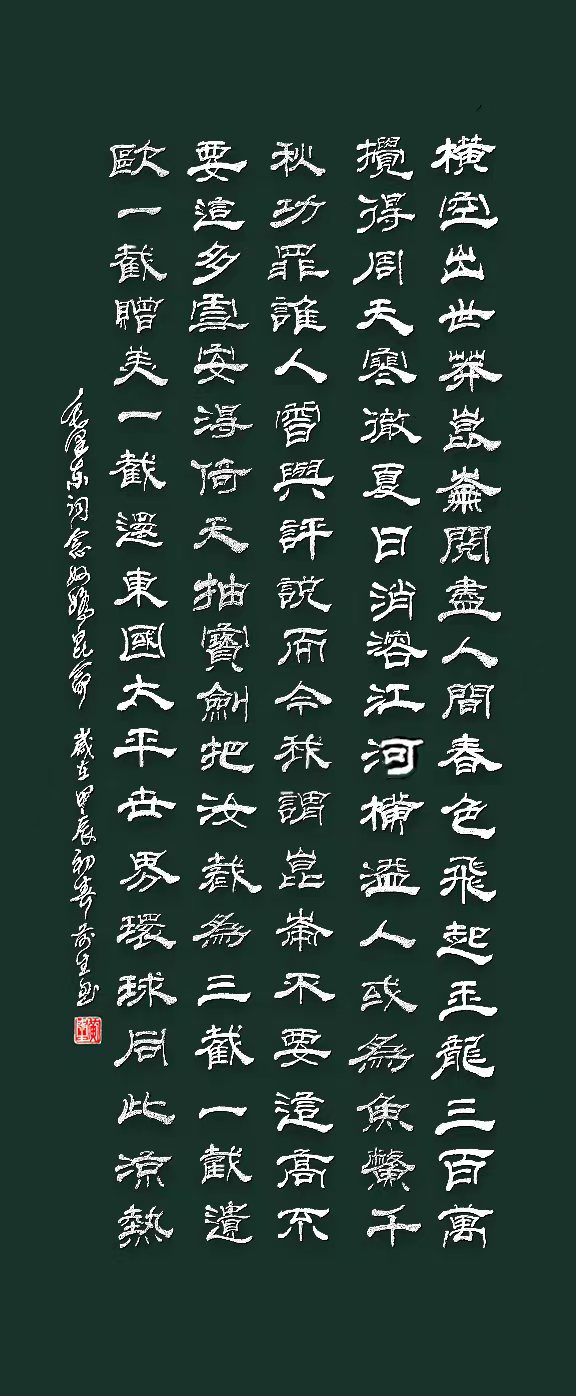 橫空出世莽崑崙閱盡人間春色飛起玉龍三百萬
攪得周天寒徹夏日消溶江河橫溢人或為魚鱉千
秋功罪誰人曾與評說而今我謂崑崙不要這高不
要這多雪安得倚天抽寶劍把汝裁為三截一截遺
歐一截贈美一截還東國太平世界環球同此涼熱
毛泽东词念奴娇昆侖 歲在甲辰初春